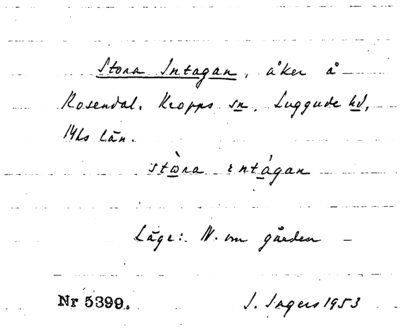 Stora Intagan, åker å
Rosendal, Kropps sn, Luggude hd,
Mhs län.
stò̱ra intágan
Läge: N. om gården
Nr 5399. I. Ingers 1953